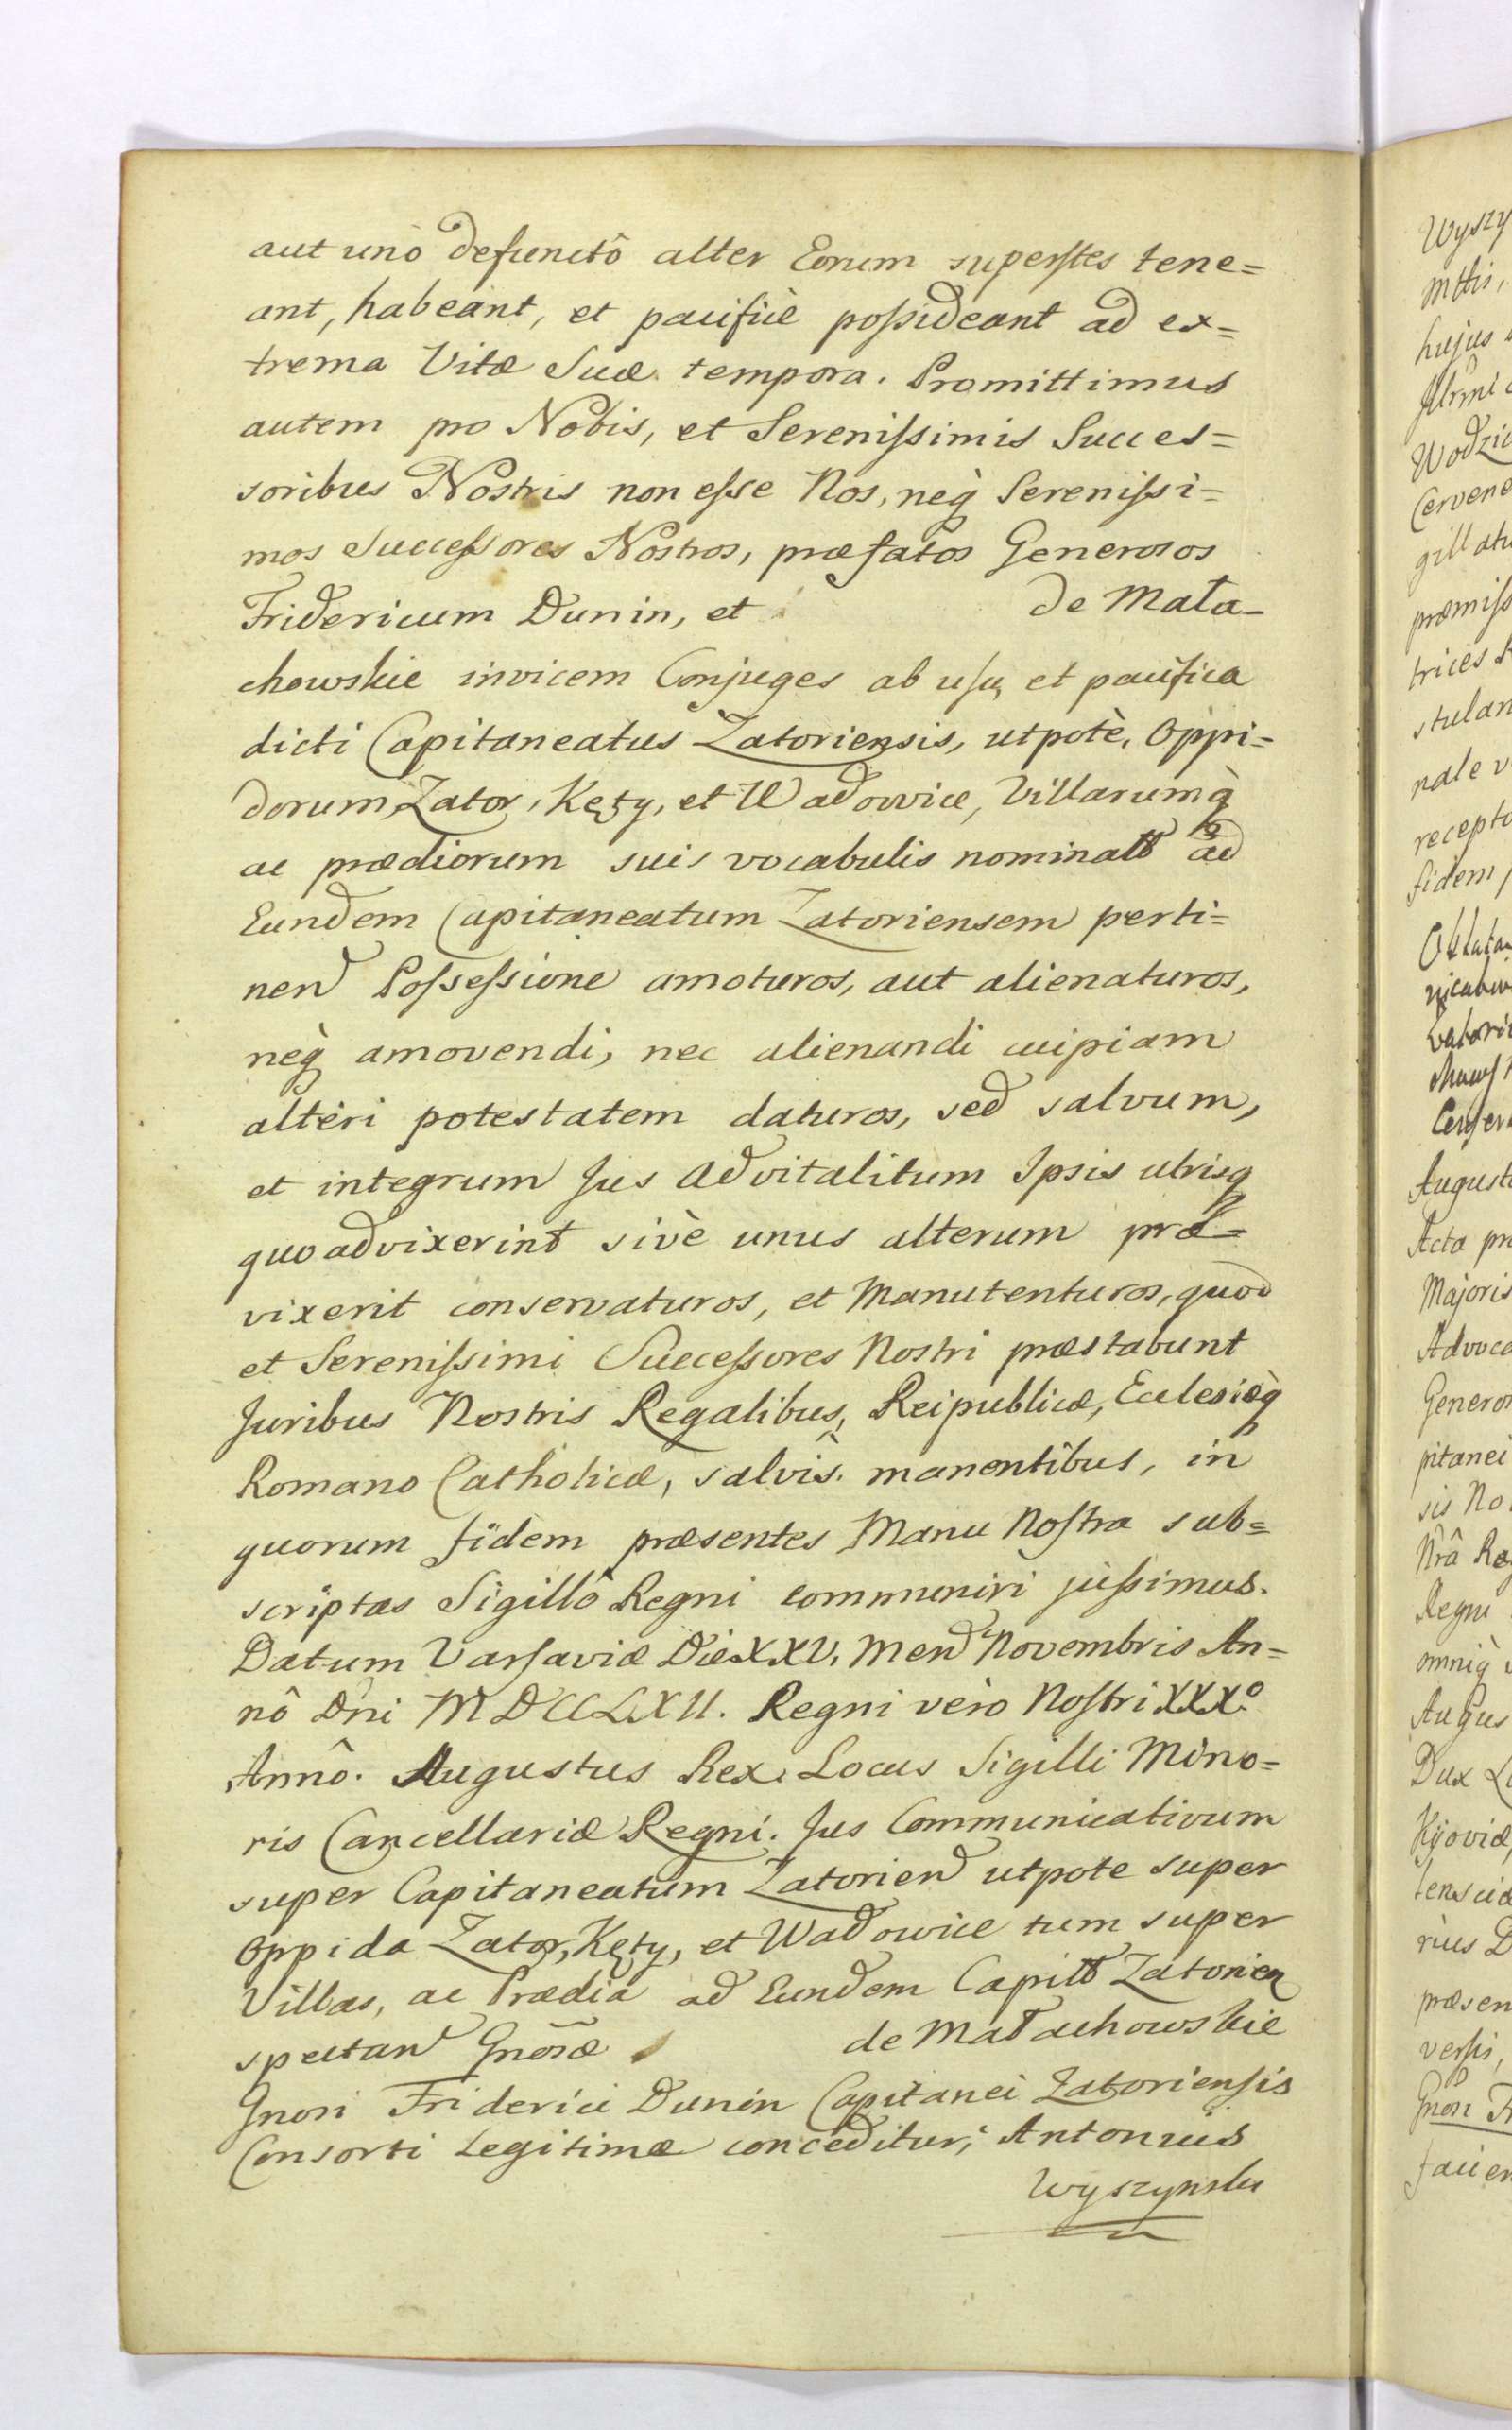 aut unò defunctô alter Eorum superstes tene=
ant, habeant, et pacificè possideant ad ex=
trema Vitæ Suæ tempora. Promittimus
autem pro Nobis, et Serenissimis Succes=
soribus Nostris non esse Nos, neq̀ Serenissi=
mos Successores Nostros, præfatos Generosos
Fridericum Dunin, et de Mała-
chowskie invicem Conjuges ab usu, et pacifica
dicti Capitaneatus Zatoriensis, utpotè, Oppi=
dorum Zator, Kęty, et Wadowice, Villarumq̀
ac prædiorum suis vocabulis nominatt ad
Eundem Capitaneatum Zatoriensem perti=
nen Possessione amoturos, aut alienaturos,
neq̀ amovendi, nec alienandi cuipiam
alteri potestatem daturos, sed salvum,
et integrum Jus Advitalitum Ipsis utrisq
quoadvixerint sivè unus alterum præ=
vixerit conservaturos, et Manutenturos, quod
et Serenissimi Successores Nostri præstabunt
Juribus Nostris Regalibus, Reipublicæ, Ecclesiæq̀
Romano Catholicæ, salvis manentibus, in
quorum fidem præsentes Manu Nostra sub=
scriptas Sigillô Regni communiri jussimus.
Datum Varsaviæ Die XXV. Men Novembris An=
nô Dni MDCCLXII. Regni verò Nostri XXX.º
Annô. Augustus Rex. Locus Sigilli Mino=
ris Cancellariæ Regni. Jus Communicativum
super Capitaneatum Zatorien utpote super
Oppida Zator, Kęty, et Wadowice tum super
Villas, ac Prædia ad Eundem Capitt Zatorien
spectan Gnosæ de Małachowskie
Gnosi Friderici Dunin Capitanei Zatoriensis
Consorti Legitimæ conceditur; Antonius
Wyszynski
Wyszy
mttis,
hujus
Illrmi
Wodzic
Cervene
gillatu
præmiss
trices
stulan
nale v
recepto
fidem
Oblata

Augusti
Acta pr
Majoris
Advoca
Generos
pitanei
sis No
Nrâ Re
Regni
omniq̀
Augus
Dux
Kijoviæ,
lensciæ
rius
præsen
versis,
Gnosi
facien